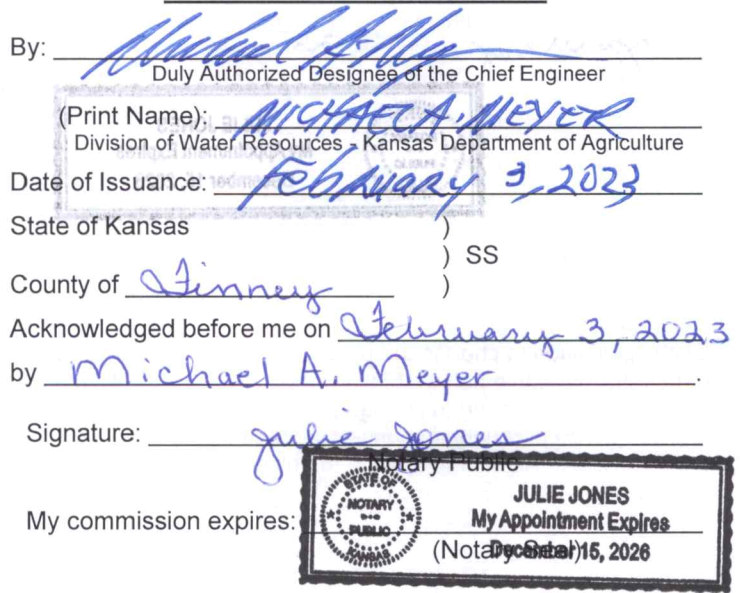 By: Michael A. Mey
Duly Authorized Designee of the Chief Engineer
(Print Name): MICHAEL A. MEYER
Division of Water Resources - Kansas Department of Agriculture
Date of Issuance: February 3, 2023
State of Kansas )
) SS
County of Finney )
Acknowledged before me on February 3, 2023
by Michael A. Meyer.
Signature: Julie Jones
Notary Public
STATE OF
NOTARY
PUBLIC
KANSAS
JULIE JONES
My Appointment Expires
December 15, 2026
My commission expires:
(Notary Seal)